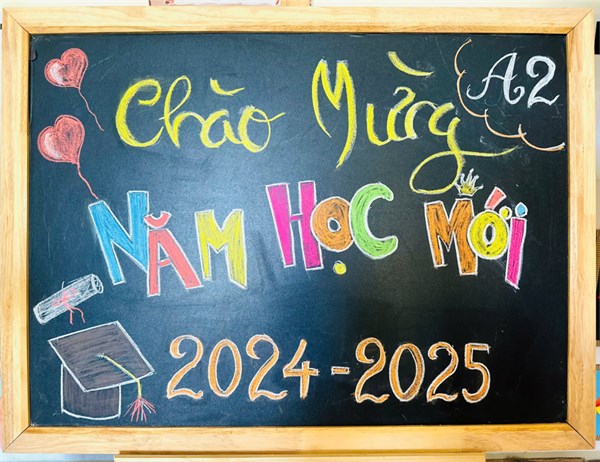 Chào Mừng
A2
NĂM HỌC MỚI
2024-2025